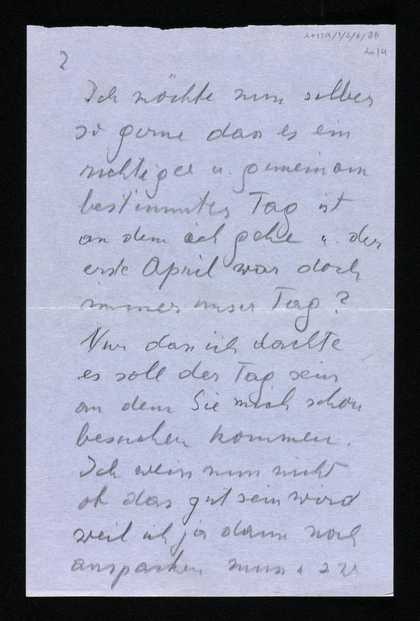 2
Ich möchte nun selber
so gerne dass es ein
richtiger u. gemeinsam
bestimmter Tag ist
an dem ich gehe u. der
erste April war doch
immer unser Tag?
Nur dass ich dachte
es soll der Tag sein
an dem Sie mich schon
besuchen kommen.
Ich weiss nun nicht
ob das gut sein wird
weil ich ja dann noch
auspacken muss u